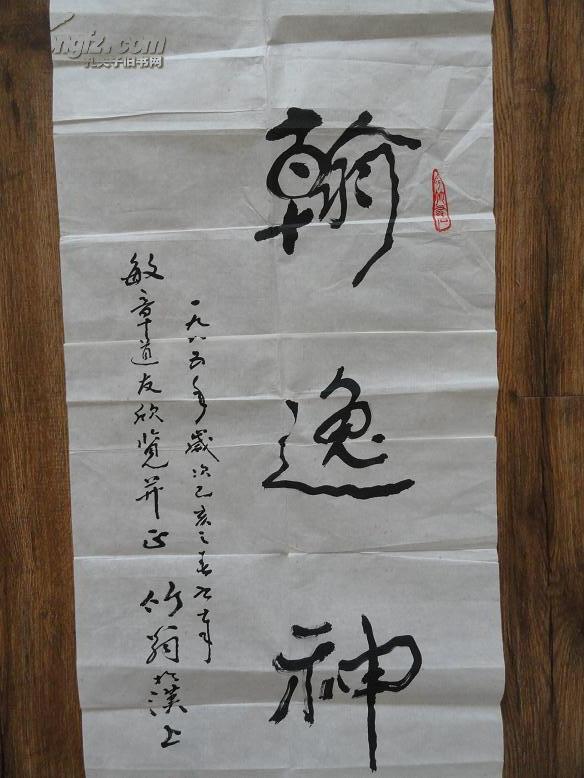 孔夫子旧书网
翰逸神
一九八五年歲次乙亥之春
敏章道友欣覽并正 竹翁於漢上